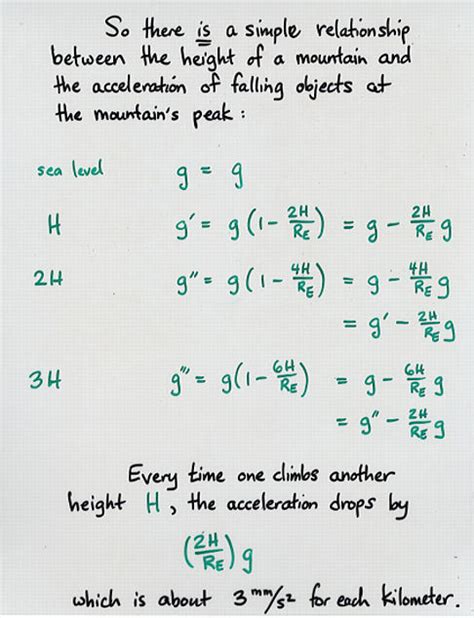 So there is a simple relationship
between the height of a mountain and
the acceleration of falling objects at
the mountain's peak :
sea level g = g
H g' = g(1 - 2H/RE) = g - 2H/RE g
2H g" = g(1 - 4H/RE) = g - 4H/RE g
= g' - 2H/RE g
3H g''' = g(1 - 6H/RE) = g - 6H/RE g
= g" - 2H/RE g
Every time one climbs another
height H, the acceleration drops by
(2H/RE) g
which is about 3 mm/s² for each kilometer.